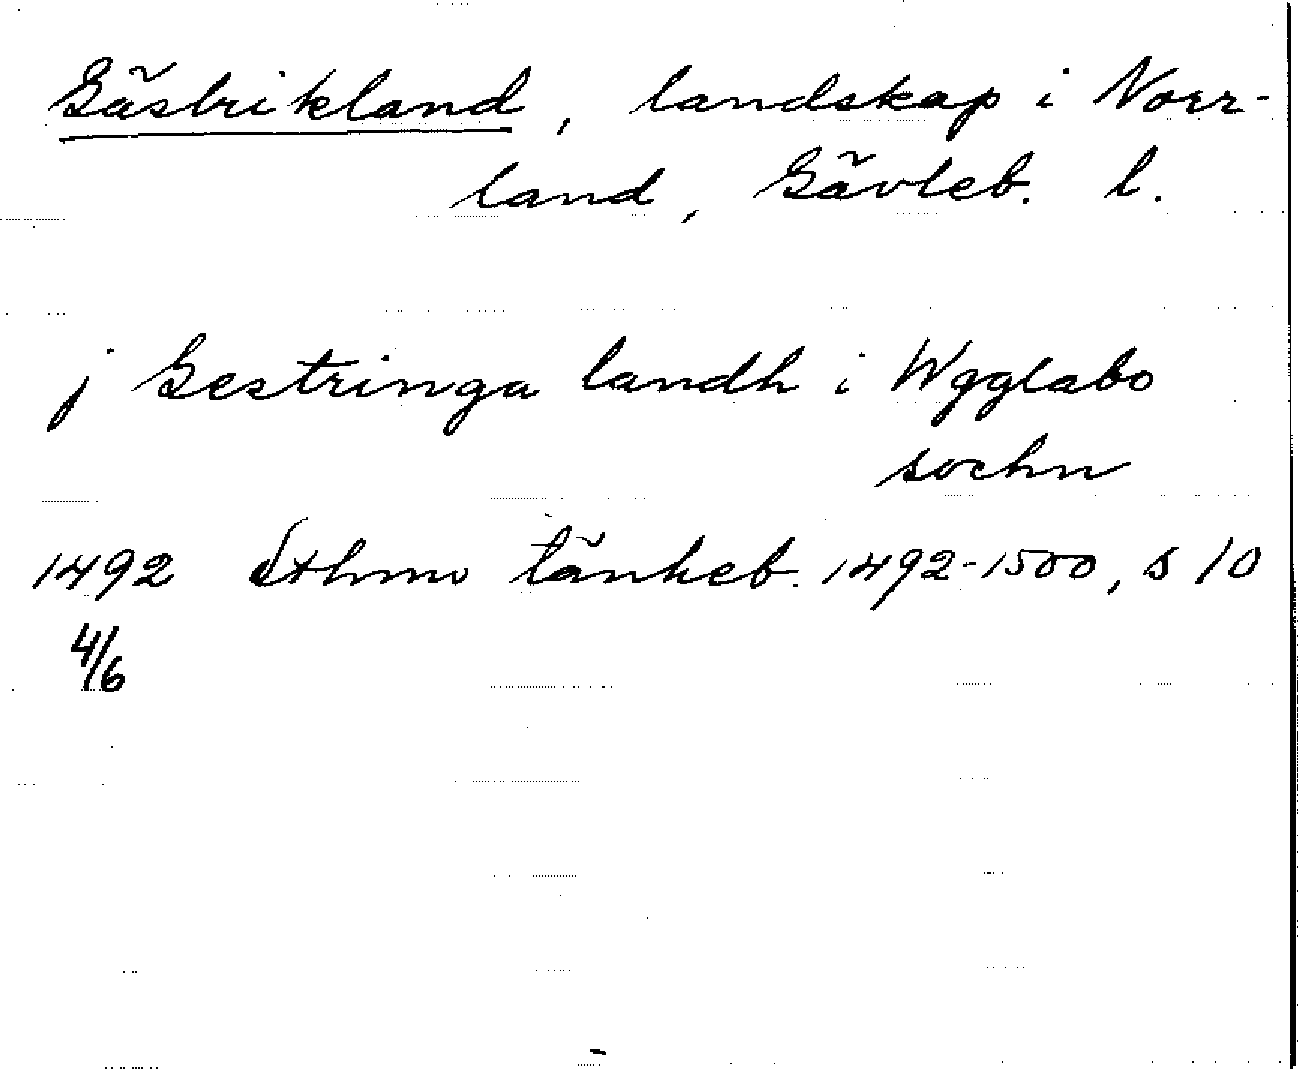 Gästrikland, landskap i Norr-
land, Gävleb. l.
j Gestringa landh i Wgglabo
sochn
1492 Sthmo tänkeb. 1492-1500, s 10
4/6